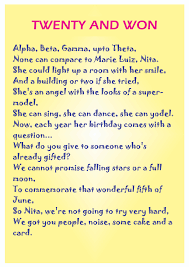 TWENTY AND WON
Alpha, Beta, Gamma, upto Theta,
None can compare to Marie Luiz, Nita.
She could light up a room with her smile,
And a building or two if she tried,
She's an angel with the looks of a super-
model.
She can sing, she can dance, she can yodel.
Now, each year her birthday comes with a
question...
What do you give to someone who's
already gifted?
We cannot promise falling stars or a full
moon,
To commemorate that wonderful fifth of
June,
So Nita, we're not going to try very hard,
We got you people, noise, some cake and a
card.